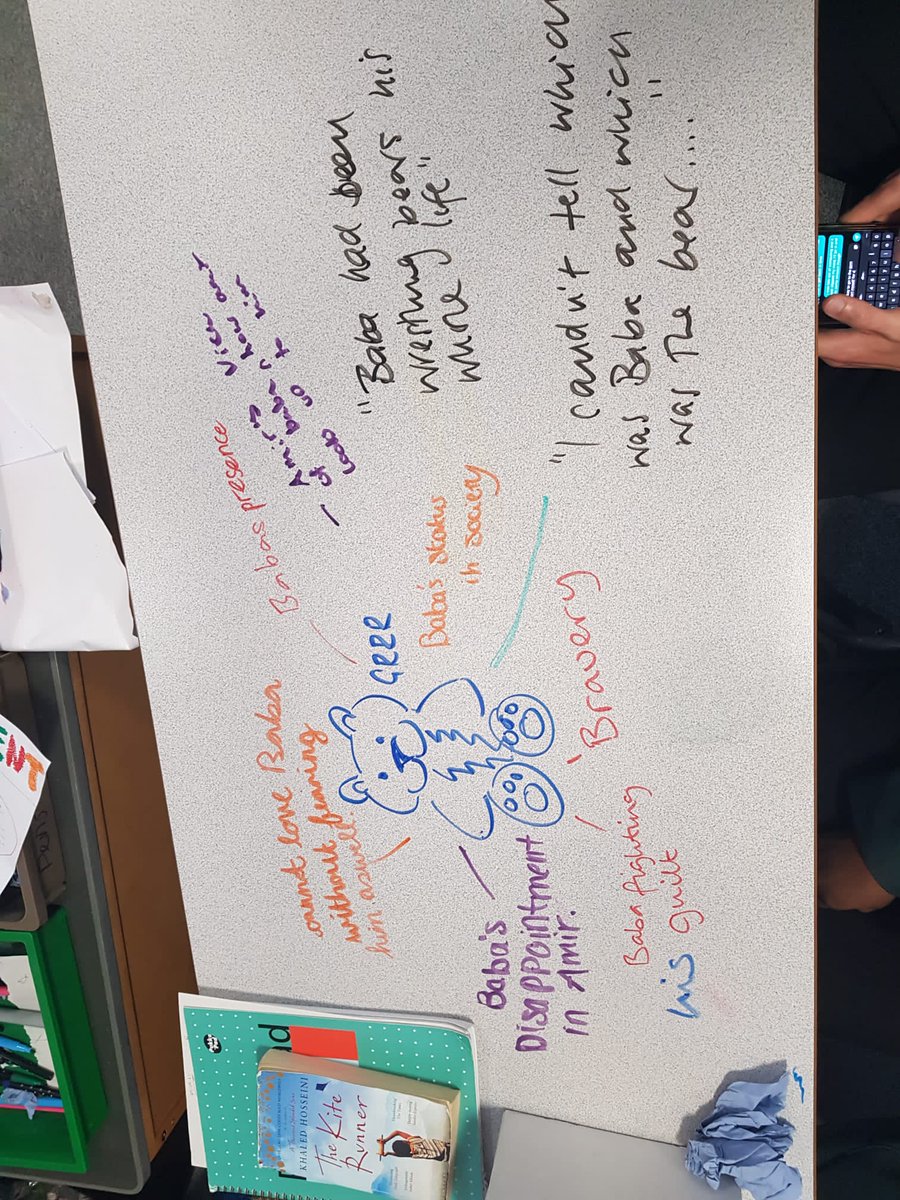 "Baba had been
wrestling bears his
whole life"
"I couldn't tell which
was Baba and which
was the bear...."
view and
Babas presence
GRRR
Baba's status
in society
cannot love Baba
without fearing
him aswell.
'Bravery
Baba's
Disappointment
in Amir.
Baba fighting
his guilt
KHALED HOSSEINI
The Kite
Runner